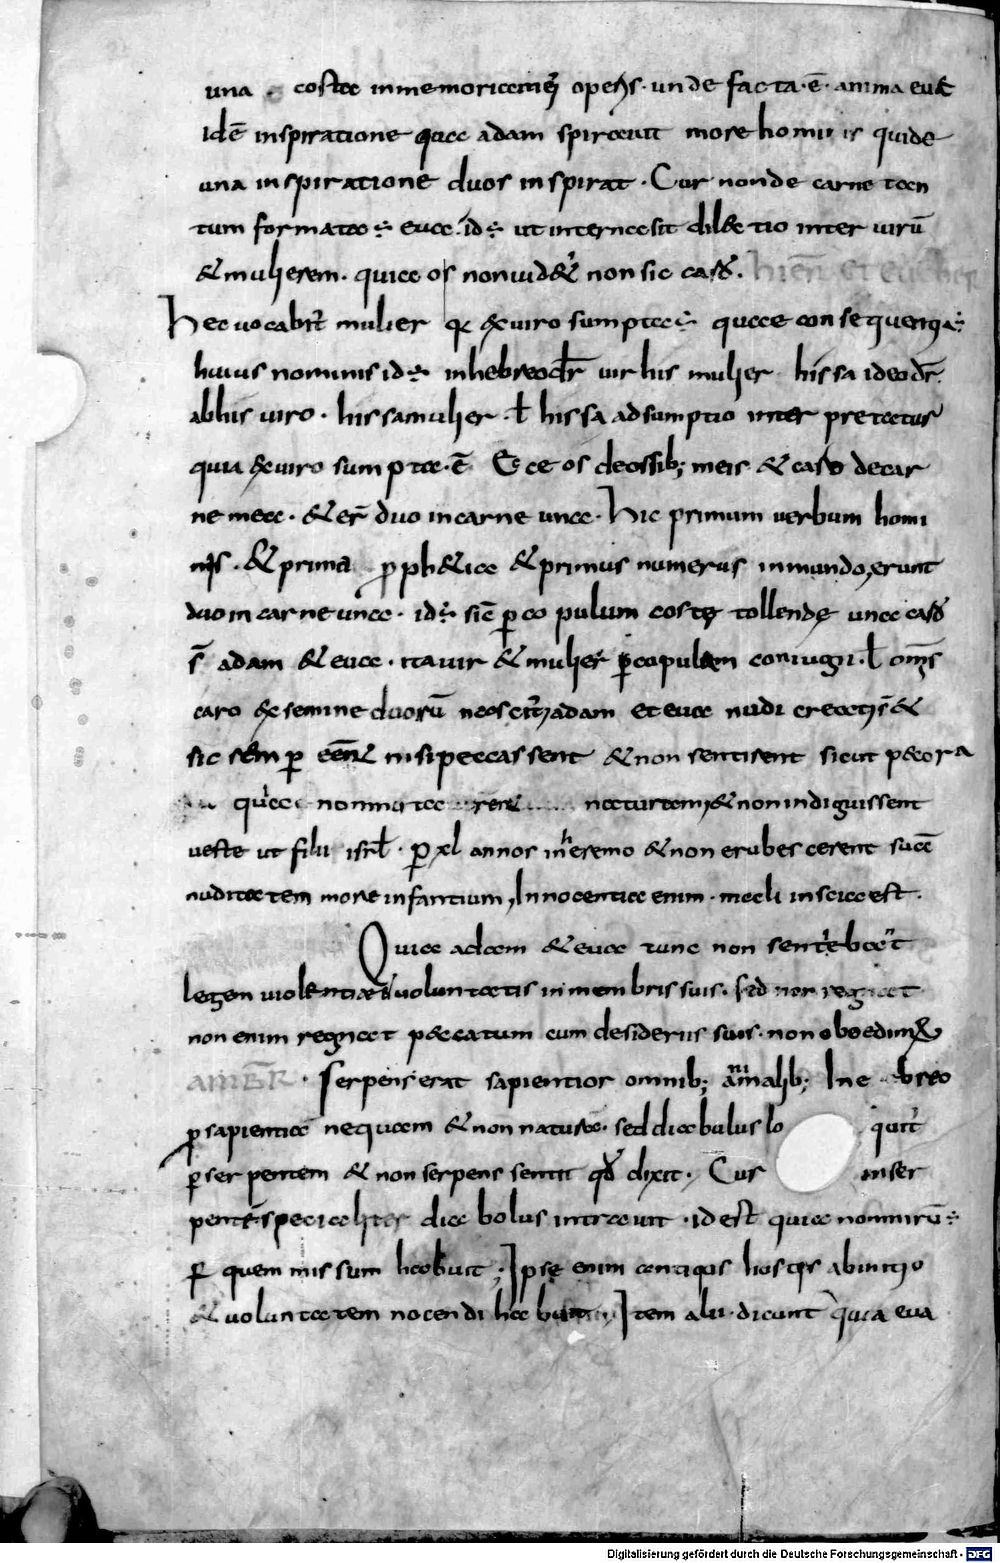 una costa inmemoriam operis · unde facta · ē · anima euae
idē inspiratione quae adam spirauit more hominis quide
una inspiratione duos inspirat · Cur non de carne tan
tum formata ÷ eua · id ÷ ut interna sit dilectio inter uirū
& mulierem · quia os non uid& non sic caro · hieron et eucher
Hec uocabit mulier q exuiro sumpta ÷ quae consequentia ÷
huius nominis id ÷ inhebreo dr uir his mulier hissa ideo dr
abhis uiro · hissa mulier · ł hissa adsumptio inter pretatur
quia exuiro sumpta · ē Ecce os deossib; meis & caro decar
ne mea · & er duo incarne una · Hic primum uerbum homi
nis · & prima prophetica & primus numerus inmundo, erunt
duo in carne una · id ÷ sic per copulum coste tollende una caro
s adam & eua · ita uir & mulier per copulam coniugii · ł omis
caro ex semine duorū nascitur, adam et eua nudi creati s &
sic semper eent nisi peccassent & non sentirent sicut pecora
quae nominata naturam, & non indiguissent
ueste ut filii isrl · per xl annos in heremo & non erubescerent sua
nuditatem more infantium, Innocentia enim · mali inscia est ·
Quia adam & eua tunc non sentiebant
legem uiolentiae uoluntatis in membris suis · sed non regnat
non enim regnat peccatum cum desideriis suis · non oboedim
AMBR · Serpens erat sapientior omnib; animalib; In ebreo
per sapientia nequam & non natura · sed diabulus lo quit
per serpentem & non serpens sentit qd dixit · Cur inser
pente specialiter diabolus intrauit · id est quia non mirū ÷
per quem missum habuit ; Ipse enim antiquis hostis ab initio
& uoluntatem nocendi habuit, Item alii · dicunt quia eua
Digitalisierung gefördert durch die Deutsche Forschungsgemeinschaft - DFG